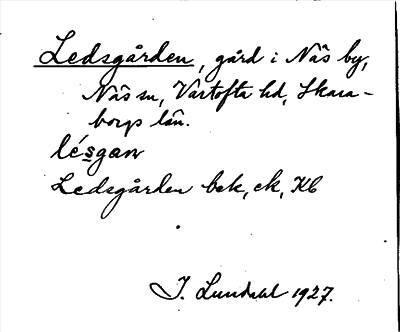 Ledsgården, gård i Näs by,
Näs sn, Vartofta hd, Skara-
borgs län.
lésgan
Ledsgården bek, ek, Kb
J. Lundahl 1927.